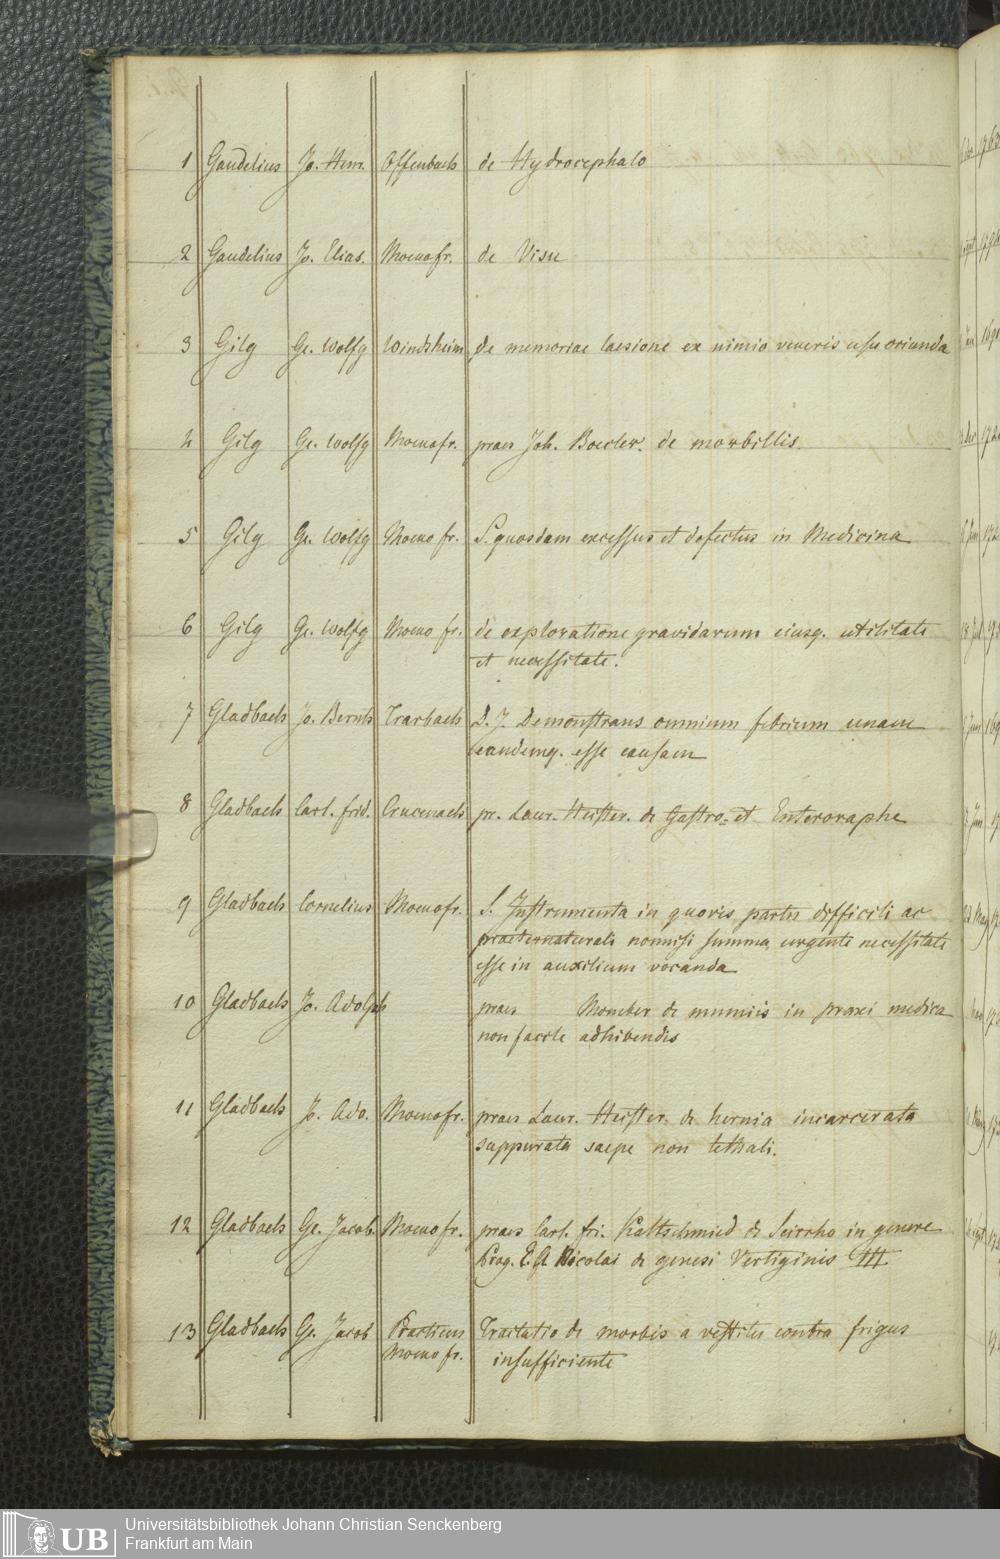 1 Gaudelius Jo. Henr. Offenbach de Hydrocephalo
2 Gaudelius Jo. Elias. Moenofr. de Visu
3 Gilg Ge. Wolfg Windsheim de memoriae laesione ex nimio veneris usu oriunda
4 Gilg Ge. Wolfg Moenofr. praes Joh. Boecler. de morbillis.
5 Gilg Ge. Wolfg Moenofr. S. quosdam excessus et defectus in Medicina
6 Gilg Ge. Wolfg Moenofr. de exploratione gravidarum eiusq. utilitate
et necessitate.
7 Gladbach Jo. Bernh Trarbach D. J. Demonstrans omnium febrium unam
eandemq. esse causam
8 Gladbach Carl. frid. Crucenach pr. Laur. Heister. de Gastro= et Enteroraphe
9 Gladbach Cornelius Moenofr. S. Instrumenta in quovis partu difficili ac
praeternaturali nonnisi summa urgente necessitate
esse in auxilium vocanda
10 Gladbach Jo. Adolph praes de mumiis in praxi medica
non facile adhibendis
11 Gladbach J. Ado. Moenofr. praes Laur. Heister. de hernia incarcerata
suppurata saepe non lethali.
12 Gladbach Ge. Jacob Moenofr. praes Carl. fri. Kaltschmied de Scirrho in genere
Prog. E. A Nicolai de genesi Vertiginis III
13 Gladbach Ge. Jacob Practicus Tractatio de morbis a vestitu contra frigus
Moenofr. insufficiente
UB
Universitätsbibliothek Johann Christian Senckenberg
Frankfurt am Main